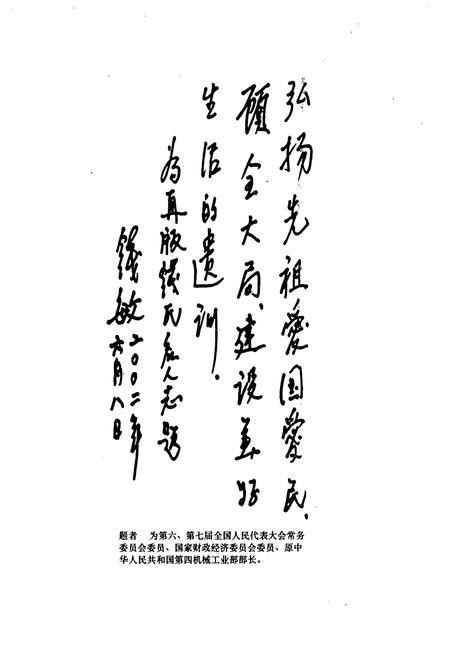 弘扬先祖愛国愛民、
顾全大局、建设美好
生活的遗训.
为再版钱氏名人志题
钱敏二〇〇二年
六月八日
题者 为第六、第七届全国人民代表大会常务
委员会委员、国家财政经济委员会委员、原中
华人民共和国第四机械工业部部长。